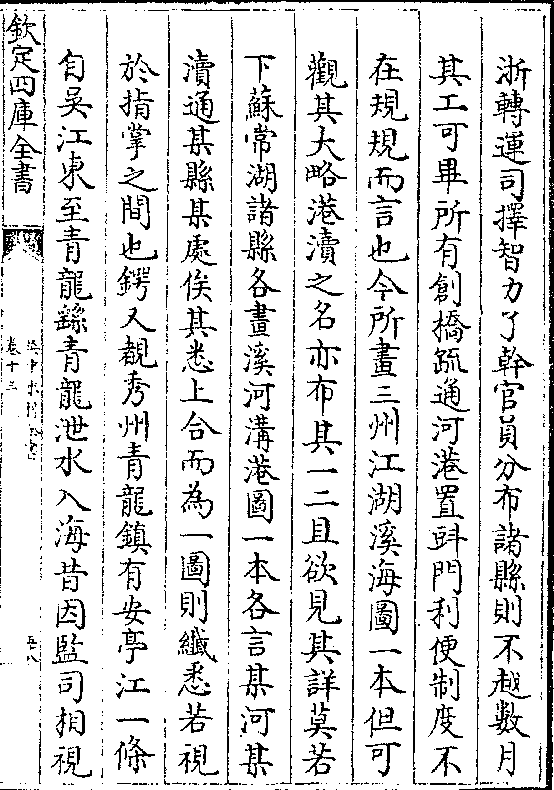 浙轉運司擇智力了幹官員分布諸縣則不越數月
其工可畢所有創橋疏通河港置㪷門利便制度不
在規規而言也今所畫三州江湖溪海圖一本但可
觀其大略港瀆之名亦布其一二且欲見其詳莫若
下蘇常湖諸縣各畫溪河溝港圖一本各言某河某
瀆通某縣某處俟其悉上合而為一圖則纖悉若視
於指掌之間也鍔又覩秀州青龍鎮有安亭江一條
自吴江東至青龍繇青龍泄水入海昔因監司相視
欽定四庫全書
卷十三